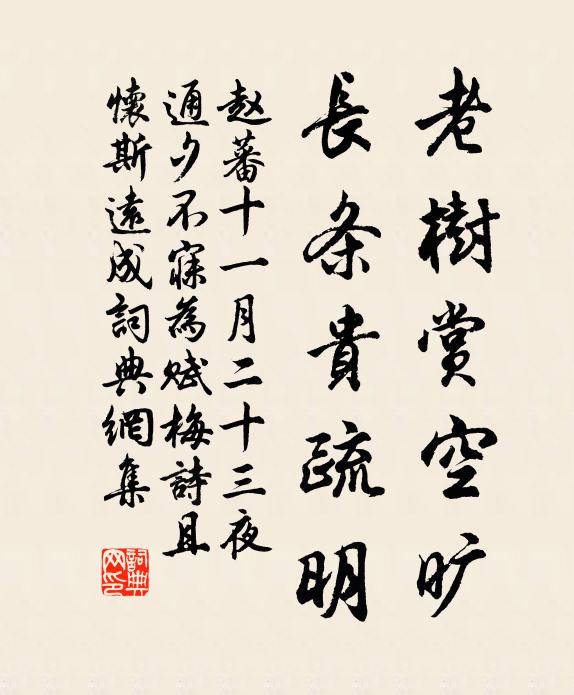 老樹賞空旷
長条貴疏明
赵蕃十一月二十三夜
通夕不寐為赋梅詩且
懷斯遠成詞典網集
詞典網印